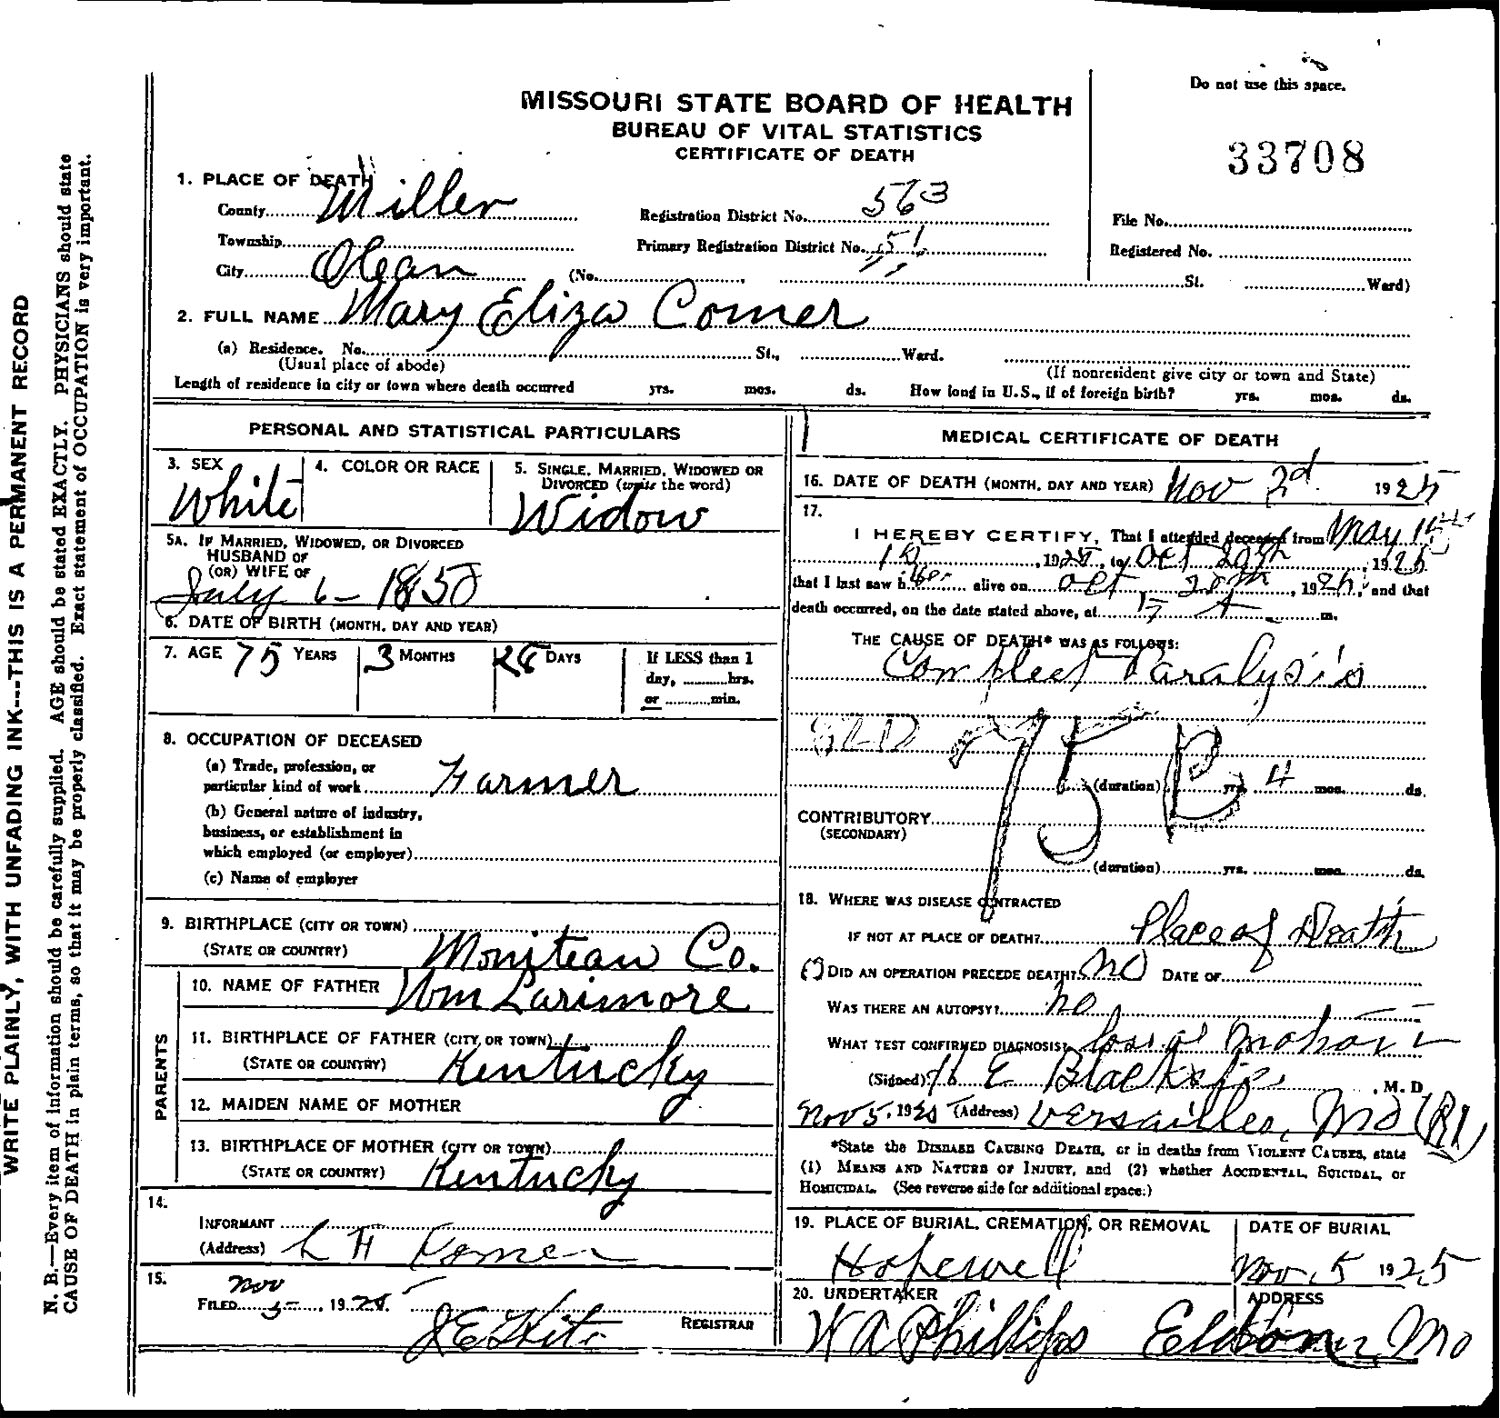 Do not use this space.
MISSOURI STATE BOARD OF HEALTH
BUREAU OF VITAL STATISTICS
CERTIFICATE OF DEATH
33708
1. PLACE OF DEATH
County Miller
Registration District No. 563
File No.
Township
Primary Registration District No. 51
Registered No.
City Olean (No. St. Ward)
2. FULL NAME Mary Eliza Comer
(a) Residence. No. St., Ward.
(Usual place of abode)
(If nonresident give city or town and State)
Length of residence in city or town where death occurred yrs. mos. ds. How long in U.S., if of foreign birth? yrs. mos. ds.
PERSONAL AND STATISTICAL PARTICULARS
3. SEX
4. COLOR OR RACE
5. SINGLE, MARRIED, WIDOWED OR
DIVORCED (write the word)
White
Widow
5A. IF MARRIED, WIDOWED, OR DIVORCED
HUSBAND OF
(OR) WIFE OF
July 6 - 1850
6. DATE OF BIRTH (MONTH, DAY AND YEAR)
7. AGE 75 YEARS 3 MONTHS 28 DAYS
If LESS than 1
day, hrs.
or min.
8. OCCUPATION OF DECEASED
(a) Trade, profession, or
particular kind of work Farmer
(b) General nature of industry,
business, or establishment in
which employed (or employer)
(c) Name of employer
9. BIRTHPLACE (CITY OR TOWN)
(STATE OR COUNTRY) Moniteau Co.
PARENTS
10. NAME OF FATHER Wm Larimore
11. BIRTHPLACE OF FATHER (CITY OR TOWN)
(STATE OR COUNTRY) Kentucky
12. MAIDEN NAME OF MOTHER
13. BIRTHPLACE OF MOTHER (CITY OR TOWN)
(STATE OR COUNTRY) Kentucky
14.
INFORMANT
(Address) L H Comer
15.
FILED Nov 5, 1925
J E White REGISTRAR
MEDICAL CERTIFICATE OF DEATH
16. DATE OF DEATH (MONTH, DAY AND YEAR) Nov 3d 1925
17.
I HEREBY CERTIFY, That I attended deceased from May
1925, to Oct 20th, 1925
that I last saw her alive on Oct 20th, 1925, and that
death occurred, on the date stated above, at m.
THE CAUSE OF DEATH* WAS AS FOLLOWS:
Compleet Paralysis
75 B
(duration) yrs. 4 mos. ds.
CONTRIBUTORY
(SECONDARY)
(duration) yrs. mos. ds.
18. WHERE WAS DISEASE CONTRACTED
IF NOT AT PLACE OF DEATH? Place of Death
DID AN OPERATION PRECEDE DEATH? no DATE OF
WAS THERE AN AUTOPSY? no
WHAT TEST CONFIRMED DIAGNOSIS?
(Signed) E , M. D
Nov 5, 1925 (Address) Versailles, Mo
*State the DISEASE CAUSING DEATH, or in deaths from VIOLENT CAUSES, state
(1) MEANS AND NATURE OF INJURY, and (2) whether ACCIDENTAL, SUICIDAL, or
HOMICIDAL. (See reverse side for additional space.)
19. PLACE OF BURIAL, CREMATION, OR REMOVAL
DATE OF BURIAL
Hopewell
Nov. 5 1925
20. UNDERTAKER
ADDRESS
W A Phillips
Eldon, Mo
WRITE PLAINLY, WITH UNFADING INK---THIS IS A PERMANENT RECORD
N. B.—Every item of information should be carefully supplied. AGE should be stated EXACTLY. PHYSICIANS should state
CAUSE OF DEATH in plain terms, so that it may be properly classified. Exact statement of OCCUPATION is very important.